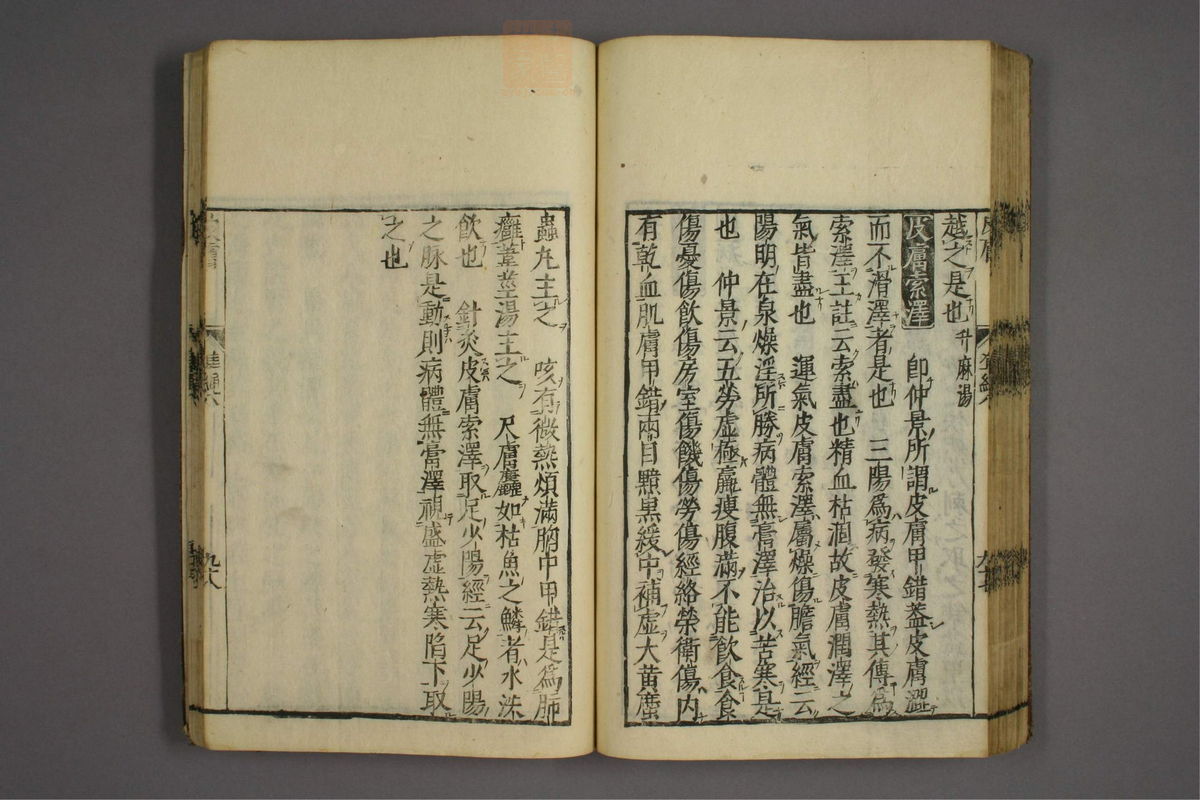 越之是也 升麻湯
皮膚索澤 即仲景所謂皮膚甲錯蓋皮膚澀
而不滑澤者是也 三陽爲病發寒熱其傳爲
索澤王註云索盡也精血枯涸故皮膚潤澤之
氣皆盡也 運氣皮膚索澤屬燥傷膽氣經云
陽明在泉燥淫所勝病體無膏澤治以苦寒是
也 仲景云五勞虛極羸瘦腹滿不能飲食食
傷憂傷飲傷房室傷饑傷勞傷經絡榮衛傷內
有乾血肌膚甲錯兩目黯黒緩中補虛大黄䗪
蟲丸主之 咳有微熱煩滿胸中甲錯是爲肺
癰葦莖湯主之 尺膚麤如枯魚之鱗者水泆
飲也 針灸皮膚索澤取足少陽經云足少陽
之脉是動則病體無膏澤視盛虛熱寒陷下取
之也
皮膚
九十八